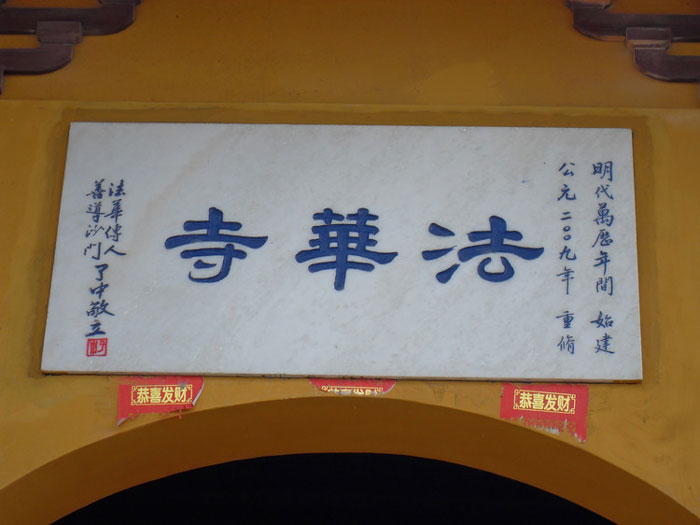 明代萬歷年間 始建
公元二〇〇九年 重脩
法華寺
法華傳人
善導沙門 了中敬立
恭喜发财
恭喜发财